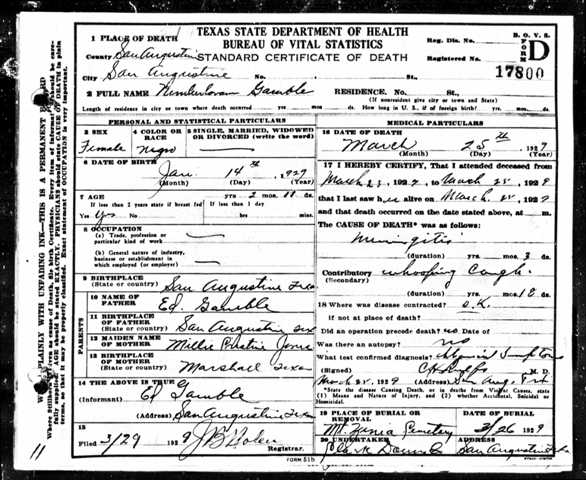 TEXAS STATE DEPARTMENT OF HEALTH
BUREAU OF VITAL STATISTICS
STANDARD CERTIFICATE OF DEATH
B. O. V. S.
FORM D
Reg. Dis. No.
Registered No.
17800
1 PLACE OF DEATH
County San Augustine
City San Augustine No. St.
2 FULL NAME Gamble RESIDENCE. No. St.
(If nonresident give city or town and State)
Length of residence in city or town where death occurred yrs. mos. ds. How long in U. S., if of foreign birth? yrs. mos. ds.
PERSONAL AND STATISTICAL PARTICULARS
3 SEX
Female
4 COLOR OR RACE
Negro
5 SINGLE, MARRIED, WIDOWED OR DIVORCED (write the word)
6 DATE OF BIRTH
Jan 14th 1929
(Month) (Day) (Year)
7 AGE
yrs. 2 mos. 11 ds.
If less than 2 years state if breast fed If less than 1 day
Yes
8 OCCUPATION
(a) Trade, profession or particular kind of work
(b) General nature of industry, business or establishment in which employed (or employer)
9 BIRTHPLACE
(State or country) San Augustine Texas
PARENTS
10 NAME OF FATHER
Ed. Gamble
11 BIRTHPLACE OF FATHER
(State or country) San Augustine Tex
12 MAIDEN NAME OF MOTHER
Millie
13 BIRTHPLACE OF MOTHER
(State or country) Marshall Texas
14 THE ABOVE IS TRUE
(Informant) Ed Gamble
(Address) San Augustine Texas
15
Filed 3/29 1929
Registrar.
FORM 51b
MEDICAL PARTICULARS
16 DATE OF DEATH
March 25th 1929
(Month) (Day) (Year)
17 I HEREBY CERTIFY, That I attended deceased from
March 23, 1929, to March 25, 1929
that I last saw her alive on March 25 1929
and that death occurred on the date stated above, at m.
The CAUSE OF DEATH* was as follows:
Meningitis
(duration) yrs. mos. 3 ds.
Contributory whooping Cough
(Secondary)
(duration) yrs. mos. 18 ds.
18 Where was disease contracted?
if not at place of death?
Did an operation precede death? no Date of
Was there an autopsy? no
What test confirmed diagnosis?
(Signed) M. D.
March 25, 1929 (Address) San Aug.
*State the disease Causing Death, or in deaths from Violent Causes, state (1) Means and Nature of Injury, and (2) whether Accidental, Suicidal or Homicidal.
19 PLACE OF BURIAL OR REMOVAL
Cemetery
DATE OF BURIAL
3/26 1929
20 UNDERTAKER
ADDRESS
San Augustine
11